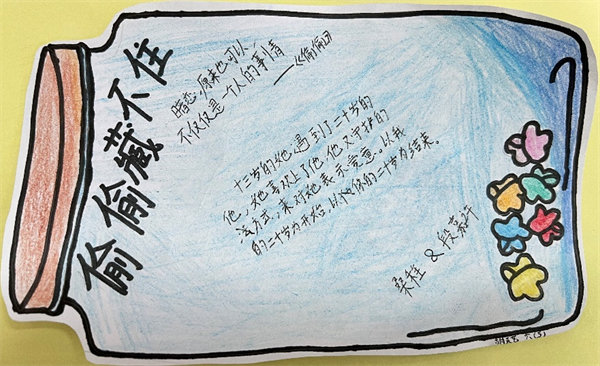 偷偷藏不住
暗恋,原来也可以
不仅仅是一个人的事情
——《偷偷》
十三岁的她,遇到了二十岁的
他,她喜欢上了他,他又守护的
法方式,来对她表示宠意。以我
的二十岁为开始,以你的二十岁为结束。
桑桂 & 段嘉许
六(5)